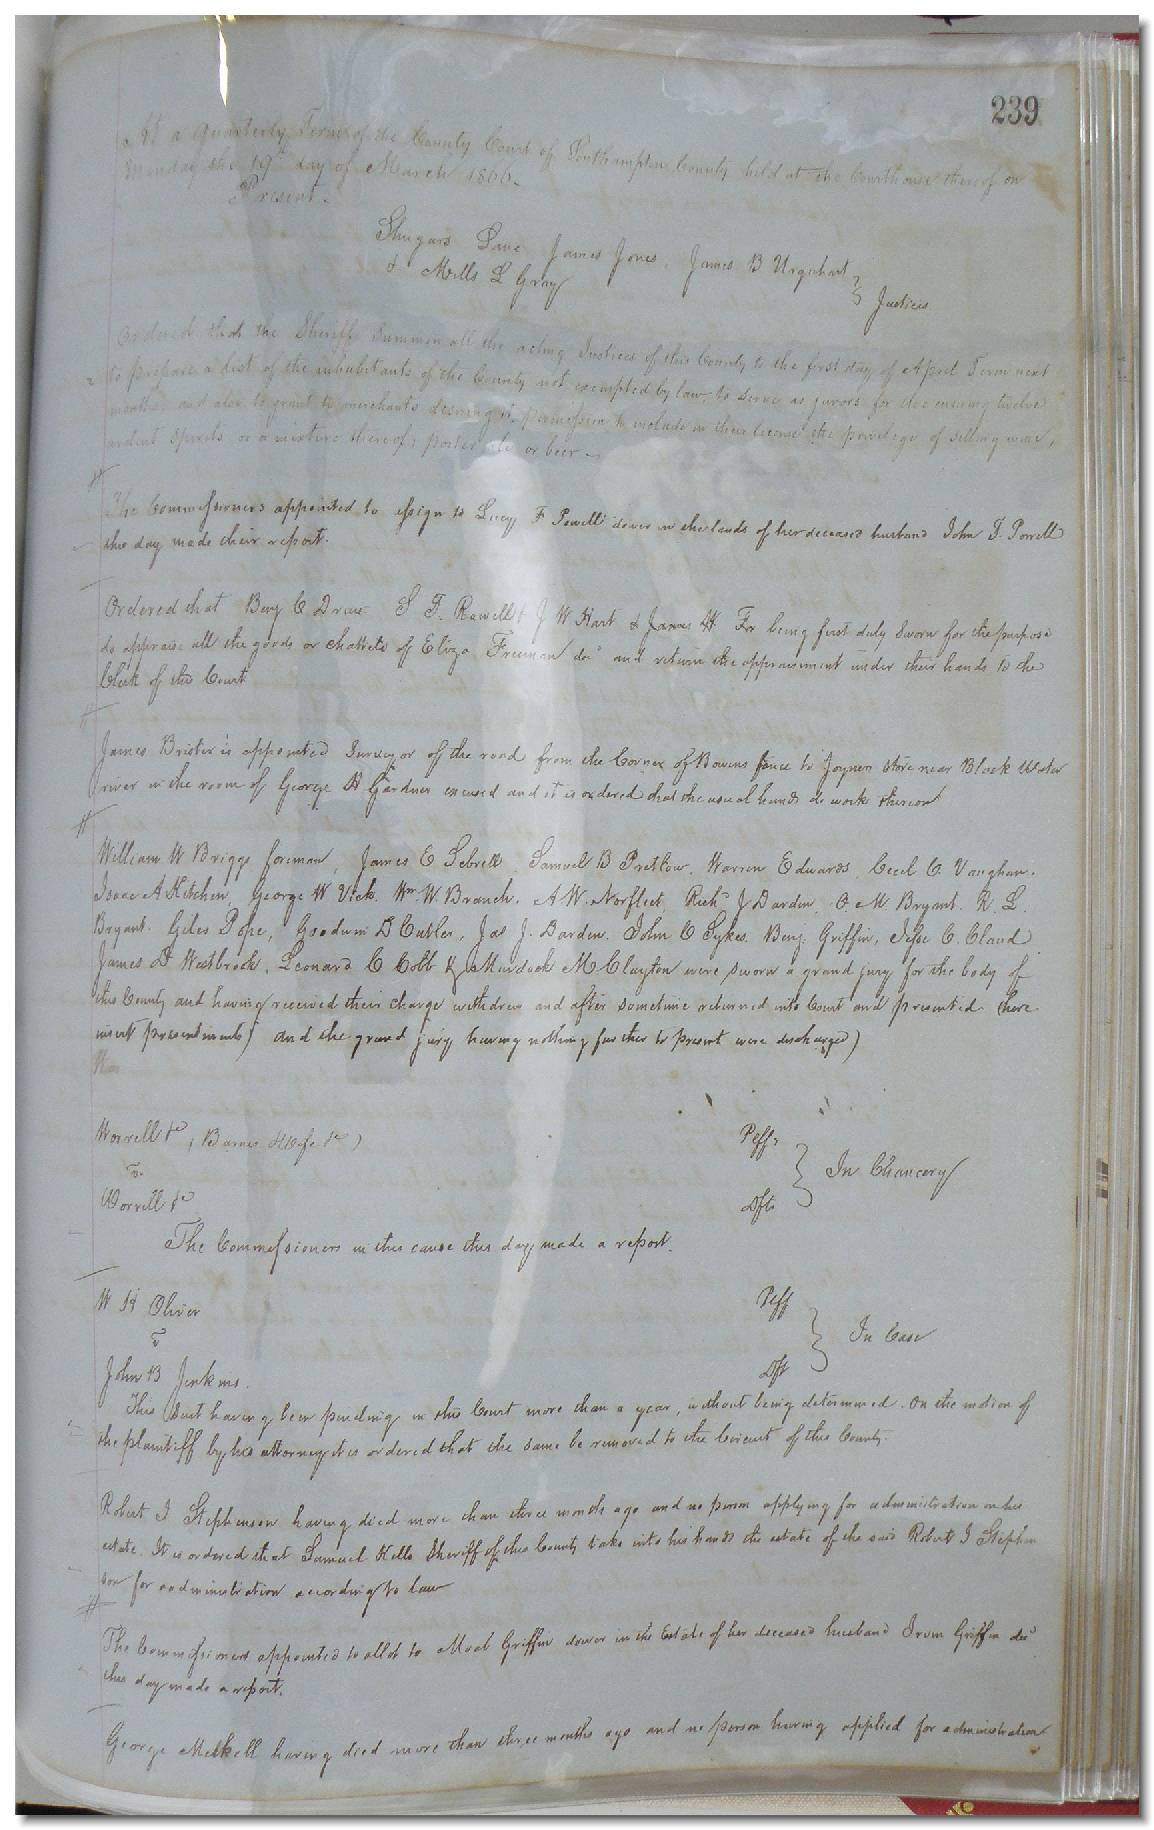 239
At a Quarterly Term of the County Court of Southampton County held at the Courthouse thereof on
Monday the 19th day of March 1866.
Present.
Shugars Lane, James Jones, James B Urquhart
& Mills L Gray } Justices
Ordered that the Sheriff Summon all the acting Justices of this County to the first day of April Term next
to prepare a list of the inhabitants of the County not exempted by law, to serve as jurors for the ensuing twelve
months and also to grant to merchants desiring it, permission to include in their license the privilege of selling wine,
ardent spirits or a mixture thereof, porter ale or beer -
The Commissioners appointed to assign to Lucy F Powell dower in the lands of her deceased husband John T. Powell
this day made their report.
Ordered that Benj C Drew S T. Rawell J W Hart & James H. Fr being first duly sworn for the purpose
do appraise all the goods or chattels of Eliza Freeman decd and return the appraisement under their hands to the
Clerk of the Court
James Brister is appointed Surveyor of the road from the Corner of Bowens fence to Joyners store near Black Water
river in the room of George H Gardner excused and it is ordered that the usual hands do work thereon
William W Briggs foreman, James E Sebrell, Samuel B Pretlow, Warren Edwards, Cecil C. Vaughan,
Isaac A Kitchen, George W Vick, Wm. W. Branch, A. W. Norfleet, Richd J Darden, O. M. Bryant, R. L.
Bryant, Giles Pope, Goodwin D Cutler, Jas J. Darden, John C Sykes, Benj. Griffin, Jesse C. Claud
James D Westbrook, Leonard C Cobb & Murdock McClayton were sworn a grand jury for the body of
this County and having received their charge withdrew and after sometime returned into Court and presented (here
insert presentments) and the grand jury having nothing further to present were discharged)
Worrell &c, (Barnes & Wife &c) Peffs
vs. } In Chancery
Worrell &c Dfts
The Commissioners in this cause this day made a report.
W H Oliver Peff
vs } In Case
John B Jenkins. Dft
This Suit having been pending in this Court more than a year, without being determined. On the motion of
the plaintiff by his attorney it is ordered that the same be removed to the Circuit of this County.
Robert I Stephenson having died more than three months ago and no person applying for administration on his
estate. It is ordered that Samuel Kello Sheriff of this County take into his hands the estate of the said Robert I Stephen
son for administration according to law
The Commissioners appointed to allot to Griffin dower in the Estate of her deceased husband Griffin decd
this day made a report.
George having died more than three months ago and no person having applied for administration